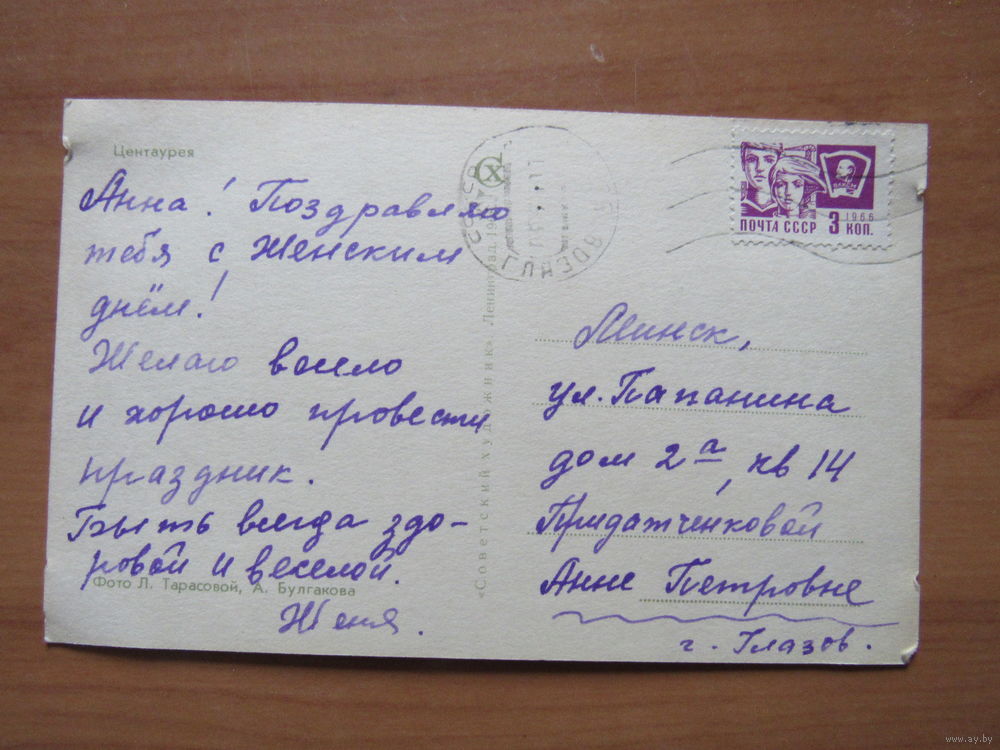 Центаурея
Анна! Поздравляю
тебя с Женским
днём!
Желаю весело
и хорошо провести
праздник.
Быть всегда здо-
ровой и веселой.
Женя.
Фото Л. Тарасовой, А. Булгакова
«Советский художник». Ленинград.
ГЛАЗОВ
ПОЧТА СССР 3 КОП.
1966
ВЛКСМ
Минск,
ул. Папанина
дом 2а, кв 14
Придатченковой
Анне Петровне
г. Глазов.
www.ay.by